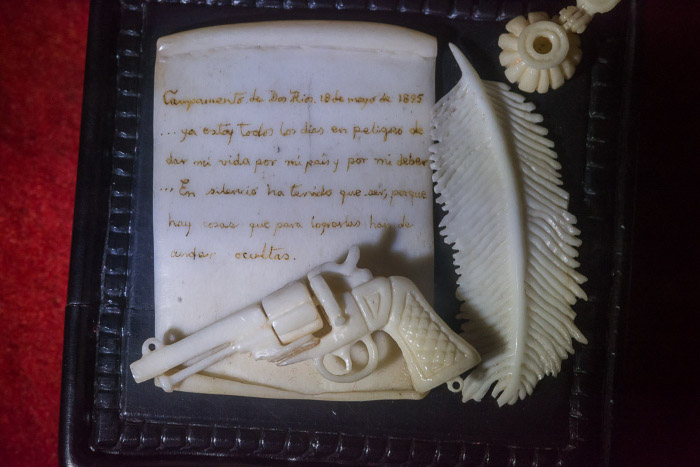 Campamento de Dos Ríos, 18 de mayo de 1895
... ya estoy todos los días en peligro de
dar mi vida por mi país y por mi deber
... En silencio ha tenido que ser, porque
hay cosas que para lograrlas han de
andar ocultas.